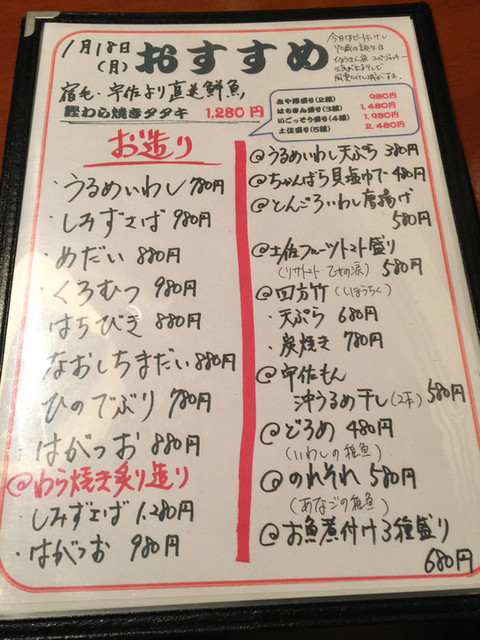 1月18日
(月)
おすすめ
今日はビートたけし
70歳の誕生日
宿毛・宇佐より直送鮮魚
鰹わら焼きタタキ 1,280円
おや得盛り(2種) 980円
はちきん盛り(3種) 1,480円
いごっそう盛り(4種) 1,980円
土佐盛り(5種) 2,480円
お造り
・うるめいわし 780円
・しみずさば 980円
・めだい 880円
・くろむつ 980円
・はちびき 880円
・なおしちまだい 880円
・ひのでぶり 780円
・はがつお 880円
@わら焼き炙り造り
・しみずさば 1,280円
・はがつお 980円
@うるめいわし天ぷら 380円
@ちゃんばら貝塩ゆで 480円
@とんごろいわし唐揚げ
580円
@土佐フルーツトマト盛り
580円
@四方竹(しほうちく)
・天ぷら 680円
・炭焼き 780円
@宇佐もん
沖うるめ干し(2本) 580円
@どろめ 480円
(いわしの稚魚)
@のれそれ 580円
(あなごの稚魚)
@お魚煮付け3種盛り
680円